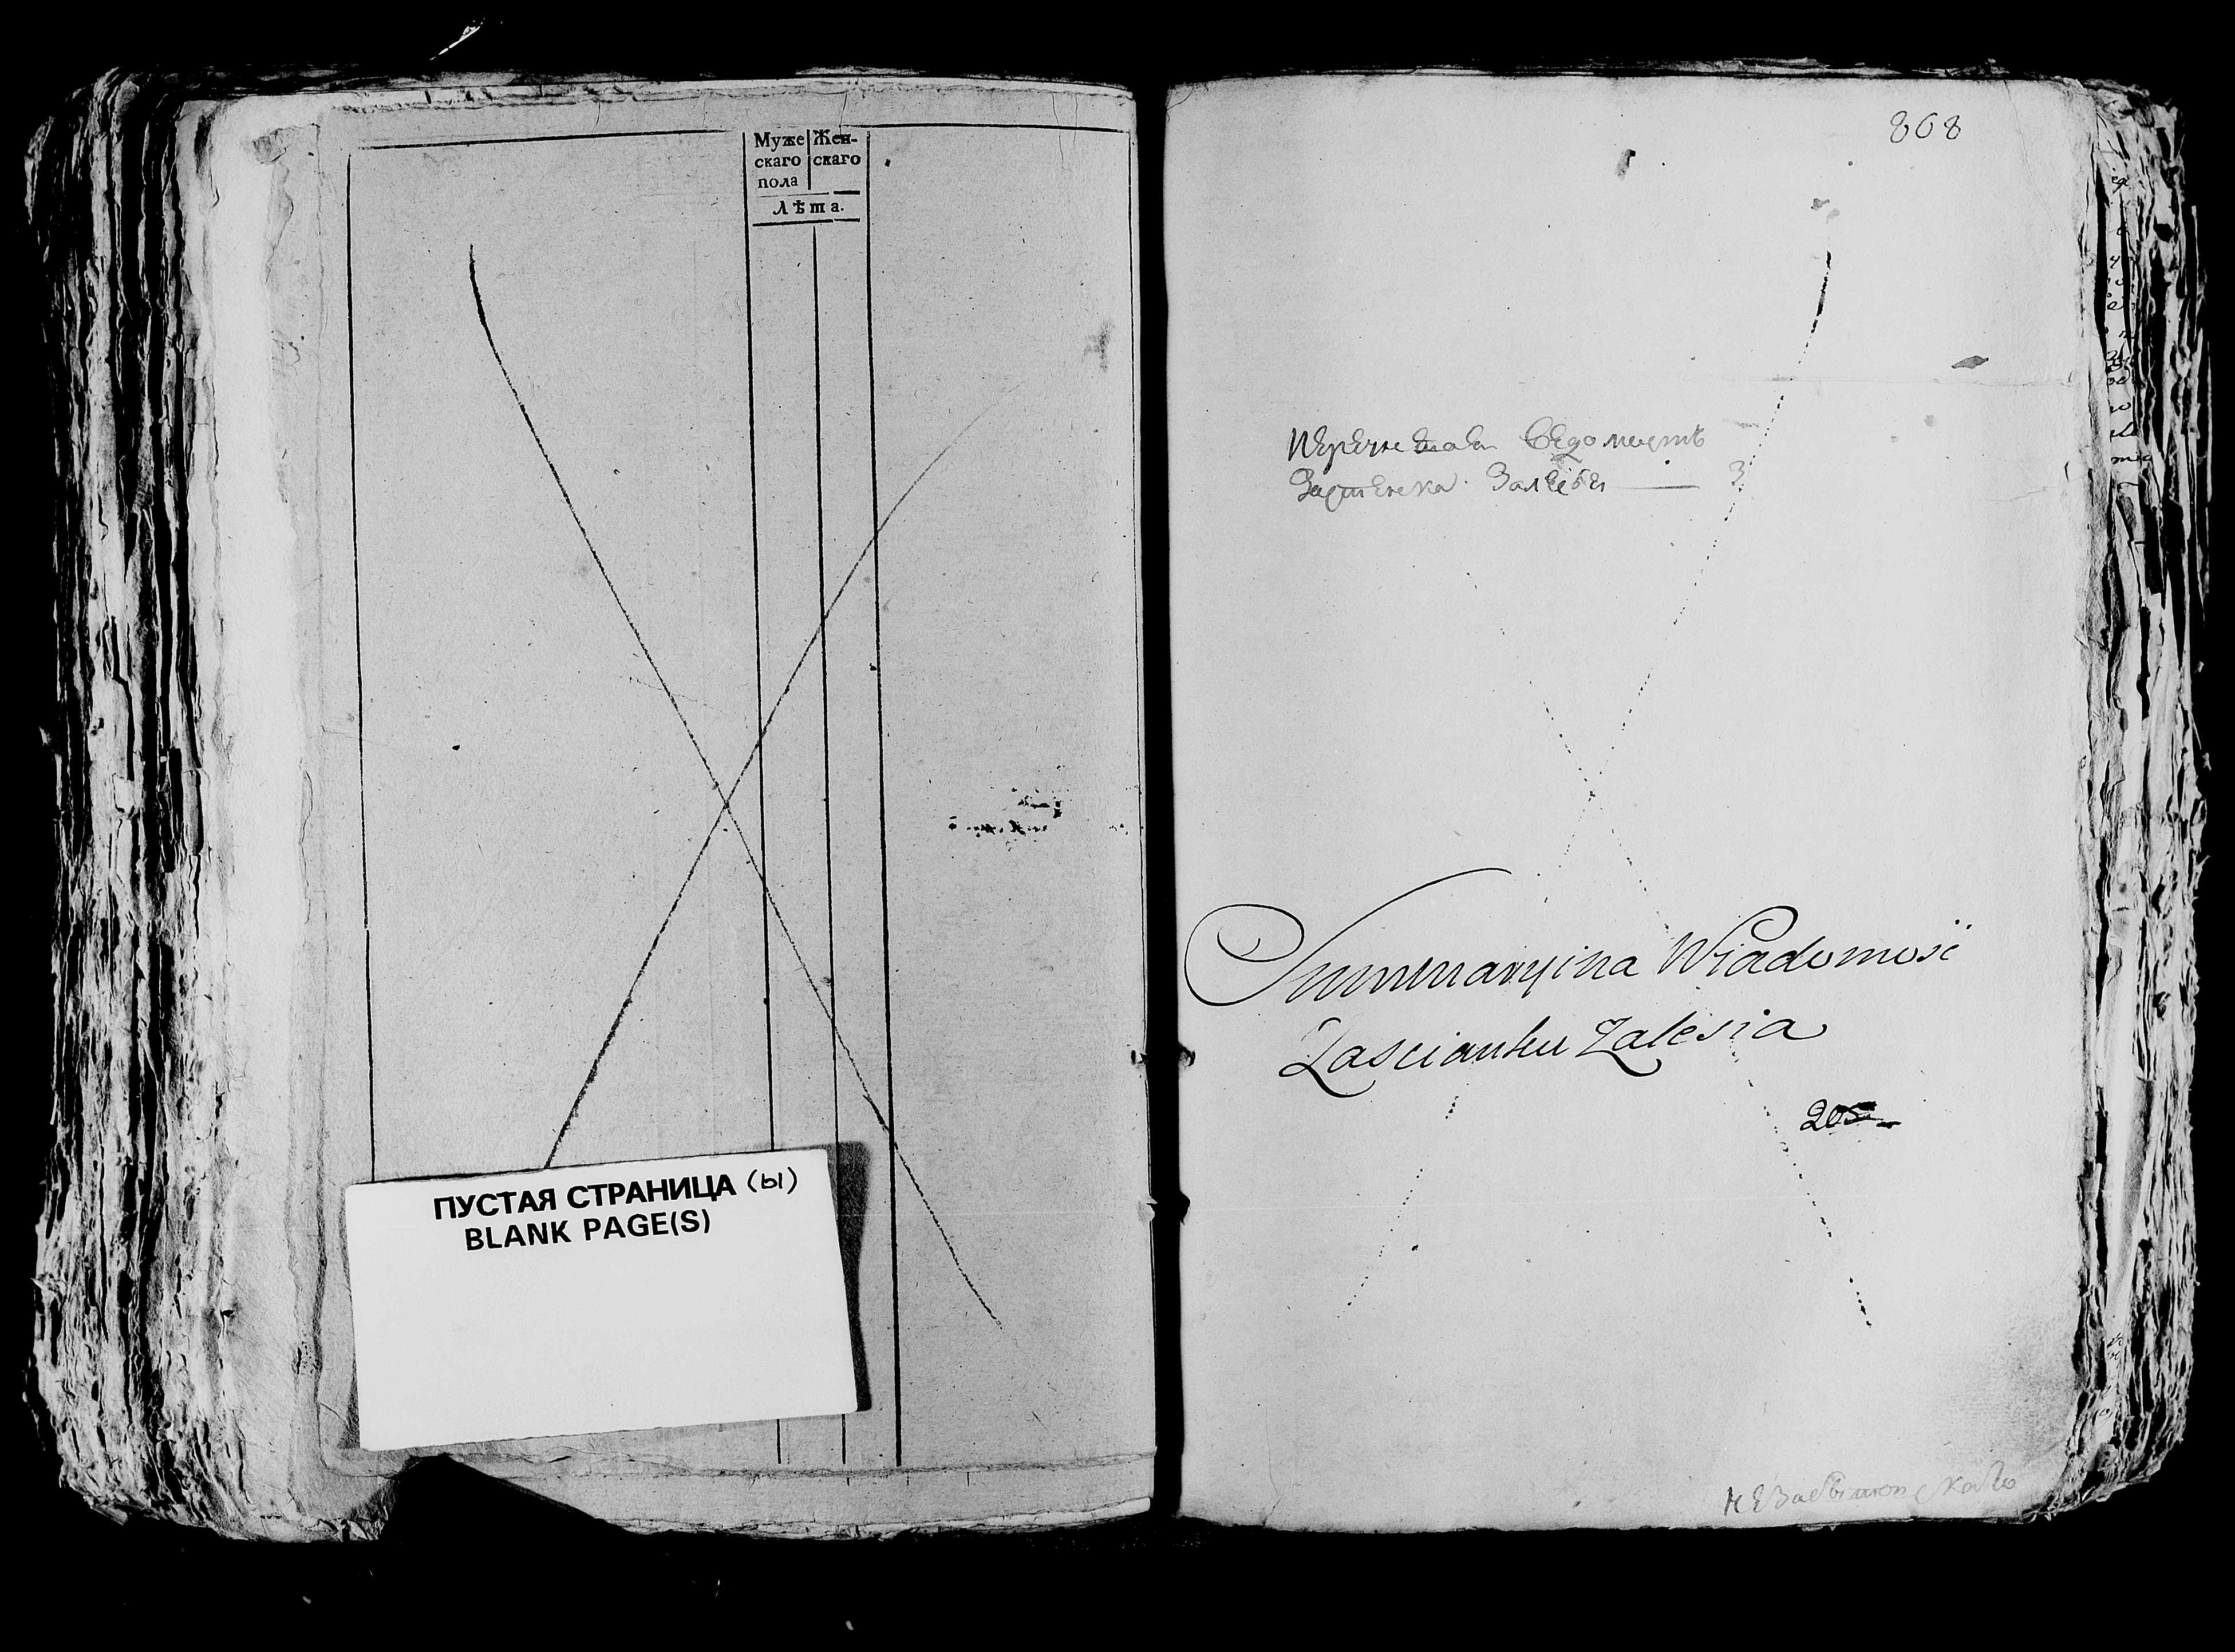 Муже Жен-
скаго скаго
пола
Лѣта.
ПУСТАЯ СТРАНИЦА (Ы)
BLANK PAGE(S)
868
Ведомость
Застенка Залесья 3
Summaryina Wiadomość
Zascianku Zalesia
205